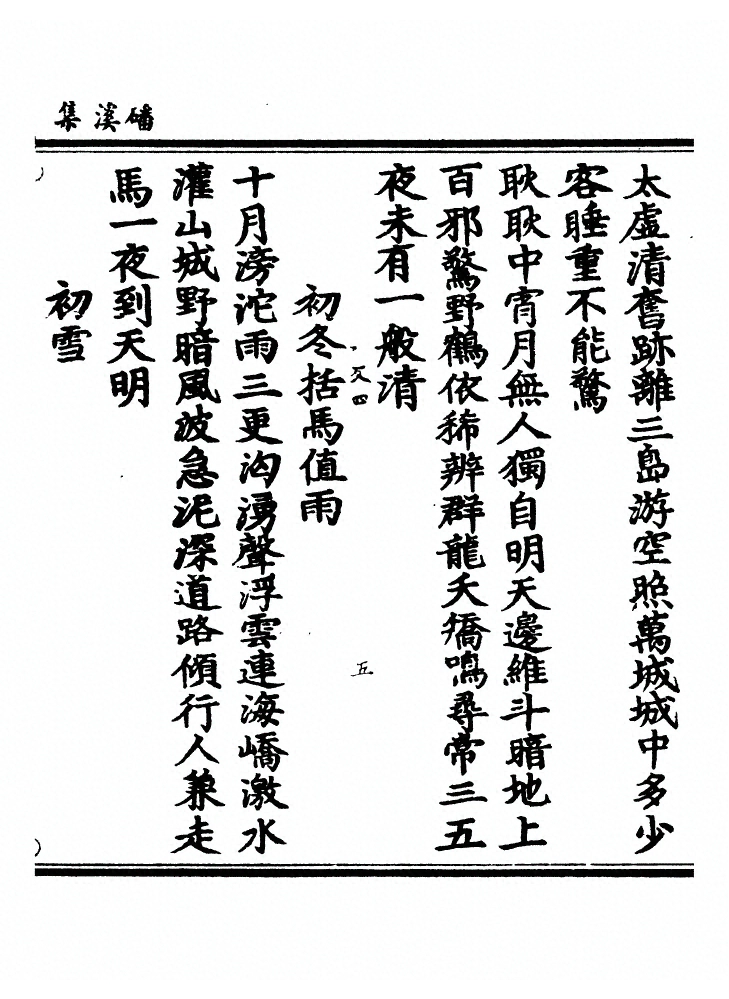 磻溪集
太虛清奮跡離三島游空照萬城城中多少
客睡重不能驚
耿耿中宵月無人獨自明天邊維斗暗地上
百邪驚野鶴依稀辨群龍夭矯鳴尋常三五
夜未有一般清
五
初冬括馬值雨
十月滂沱雨三更洶湧聲浮雲連海嶠激水
灌山城野暗風波急泥深道路傾行人兼走
馬一夜到天明
初雪